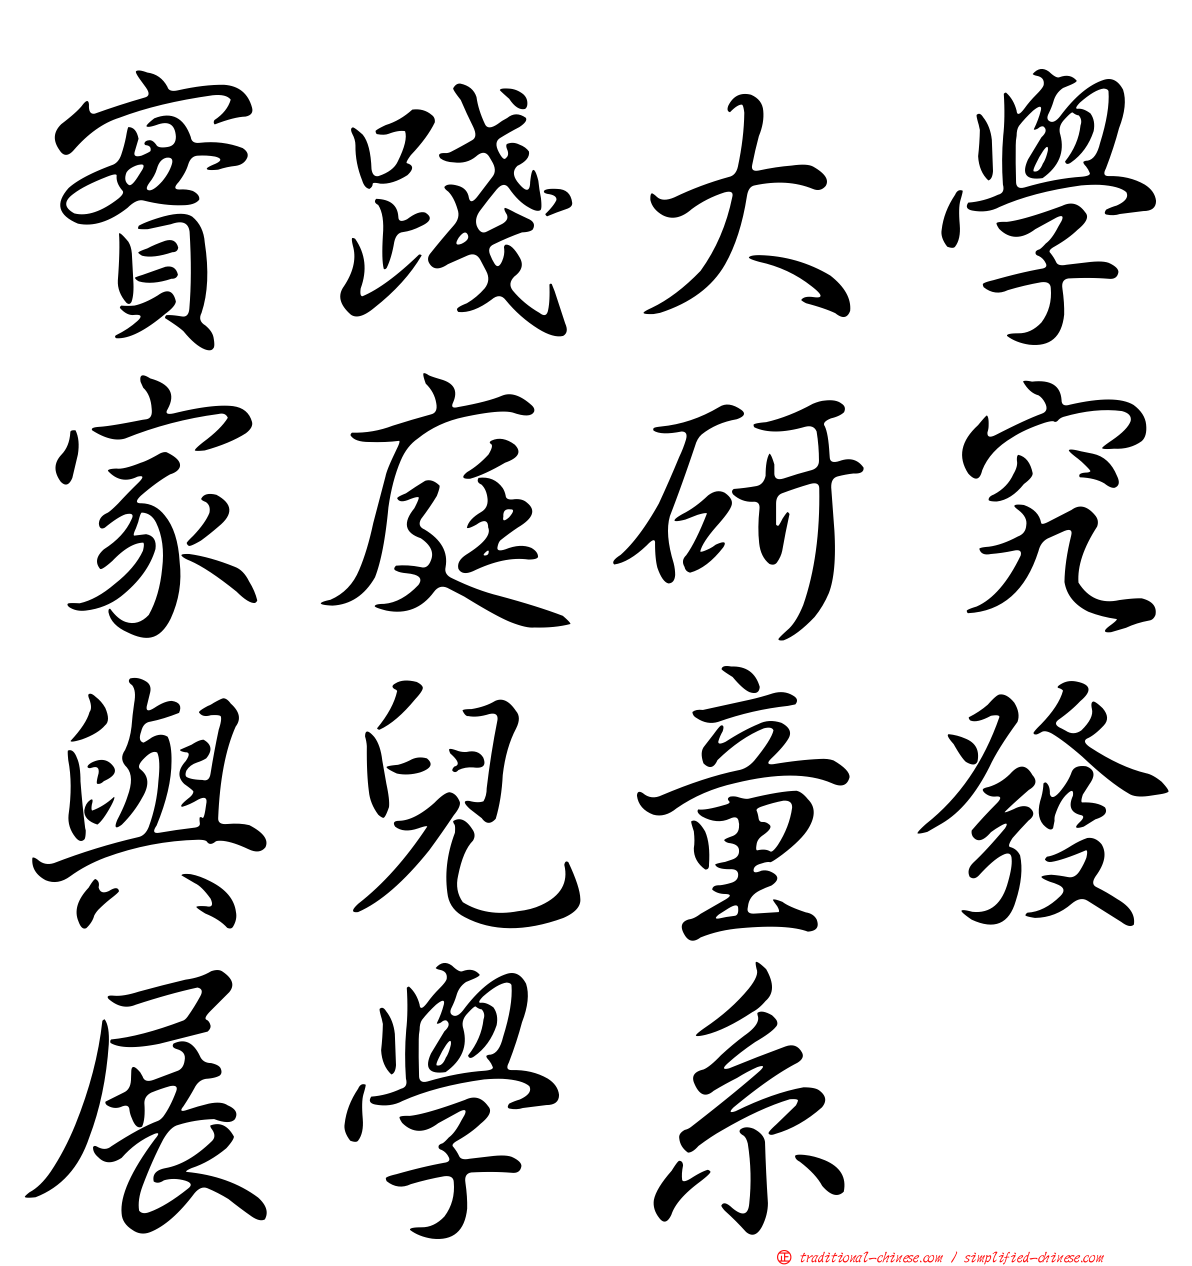 實踐大學
家庭研究
與兒童發
展學系
正 traditional-chinese.com / simplified-chinese.com